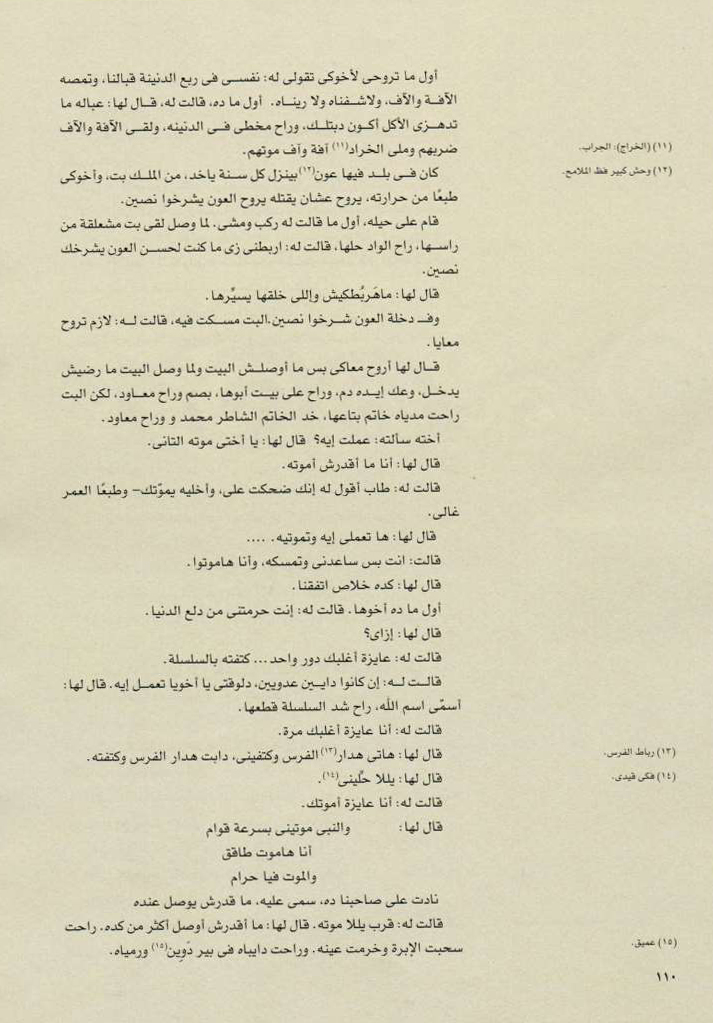 أول ما تروحى لأخوكى تقولى له: نفسى فى ربع الدنينة قبالنا، وتمصه
الآفة والآف، ولاشفناه ولا ريناه. أول ما ده، قالت له، قال لها: عباله ما
تدهزى الأكل أكون دبتلك، وراح مخطى فى الدنينه، ولقى الآفة والآف
ضربهم وملى الخراد(١١) آفة وآف موتهم.
(١١) (الخراج): الجراب.
كان فى بلد فيها عون(١٢) بينزل كل سنة ياخد، من الملك بت، وأخوكى
(١٢) وحش كبير فظ الملامح.
طبعًا من حرارته، يروح عشان يقتله يروح العون يشرخوا نصين.
قام على حيله، أول ما قالت له ركب ومشى. لما وصل لقى بت مشعلقة من
راسها، راح الواد حلها، قالت له: اربطنى زى ما كنت لحسن العون يشرخك
نصين.
قال لها: ماهَربُطكيش وإللى خلقها يسيِّرها.
وفـ دخلة العون شرخوا نصين.البت مسكت فيه، قالت له: لازم تروح
معايا.
قال لها أروح معاكى بس ما أوصلش البيت ولما وصل البيت ما رضيش
يدخل، وعك إيده دم، وراح على بيت أبوها، بصم وراح معاود، لكن البت
راحت مدياه خاتم بتاعها، خد الخاتم الشاطر محمد و وراح معاود.
أخته سألته: عملت إيه؟ قال لها: يا أختى موته التانى.
قال لها: أنا ما أقدرش أموته.
قالت له: طاب أقول له إنك ضحكت على، وأخليه يموّتك– وطبعًا العمر
غالى.
قال لها: ها تعملى إيه وتموتيه. ....
قالت: انت بس ساعدنى وتمسكه، وأنا هاموتوا.
قال لها: كده خلاص اتفقنا.
أول ما ده أخوها. قالت له: إنت حرمتنى من دلع الدنيا.
قال لها: إزاى؟
قالت له: عايزة أغلبك دور واحد... كتفته بالسلسلة.
قالت له: إن كانوا دايبين عدويين، دلوقتى يا أخويا تعمل إيه. قال لها:
أسمّى اسم الله، راح شد السلسلة قطعها.
قالت له: أنا عايزة أغلبك مرة.
قال لها: هاتى هدار(١٣) الفرس وكتفينى، دابت هدار الفرس وكتفته.
(١٣) رباط الفرس.
قال لها: يللا حلِّينى(١٤).
(١٤) فكى قيدى.
قالت له: أنا عايزة أموتك.
قال لها: والنبى موتينى بسرعة قوام
أنا هاموت طافق
والموت فيا حرام
نادت على صاحبنا ده، سمى عليه، ما قدرش يوصل عنده
قالت له: قرب يللا موته. قال لها: ما أقدرش أوصل أكثر من كده. راحت
سحبت الإبرة وخرمت عينه. وراحت دايباه فى بير دَوِين(١٥) ورمياه.
(١٥) عميق.
١١٠